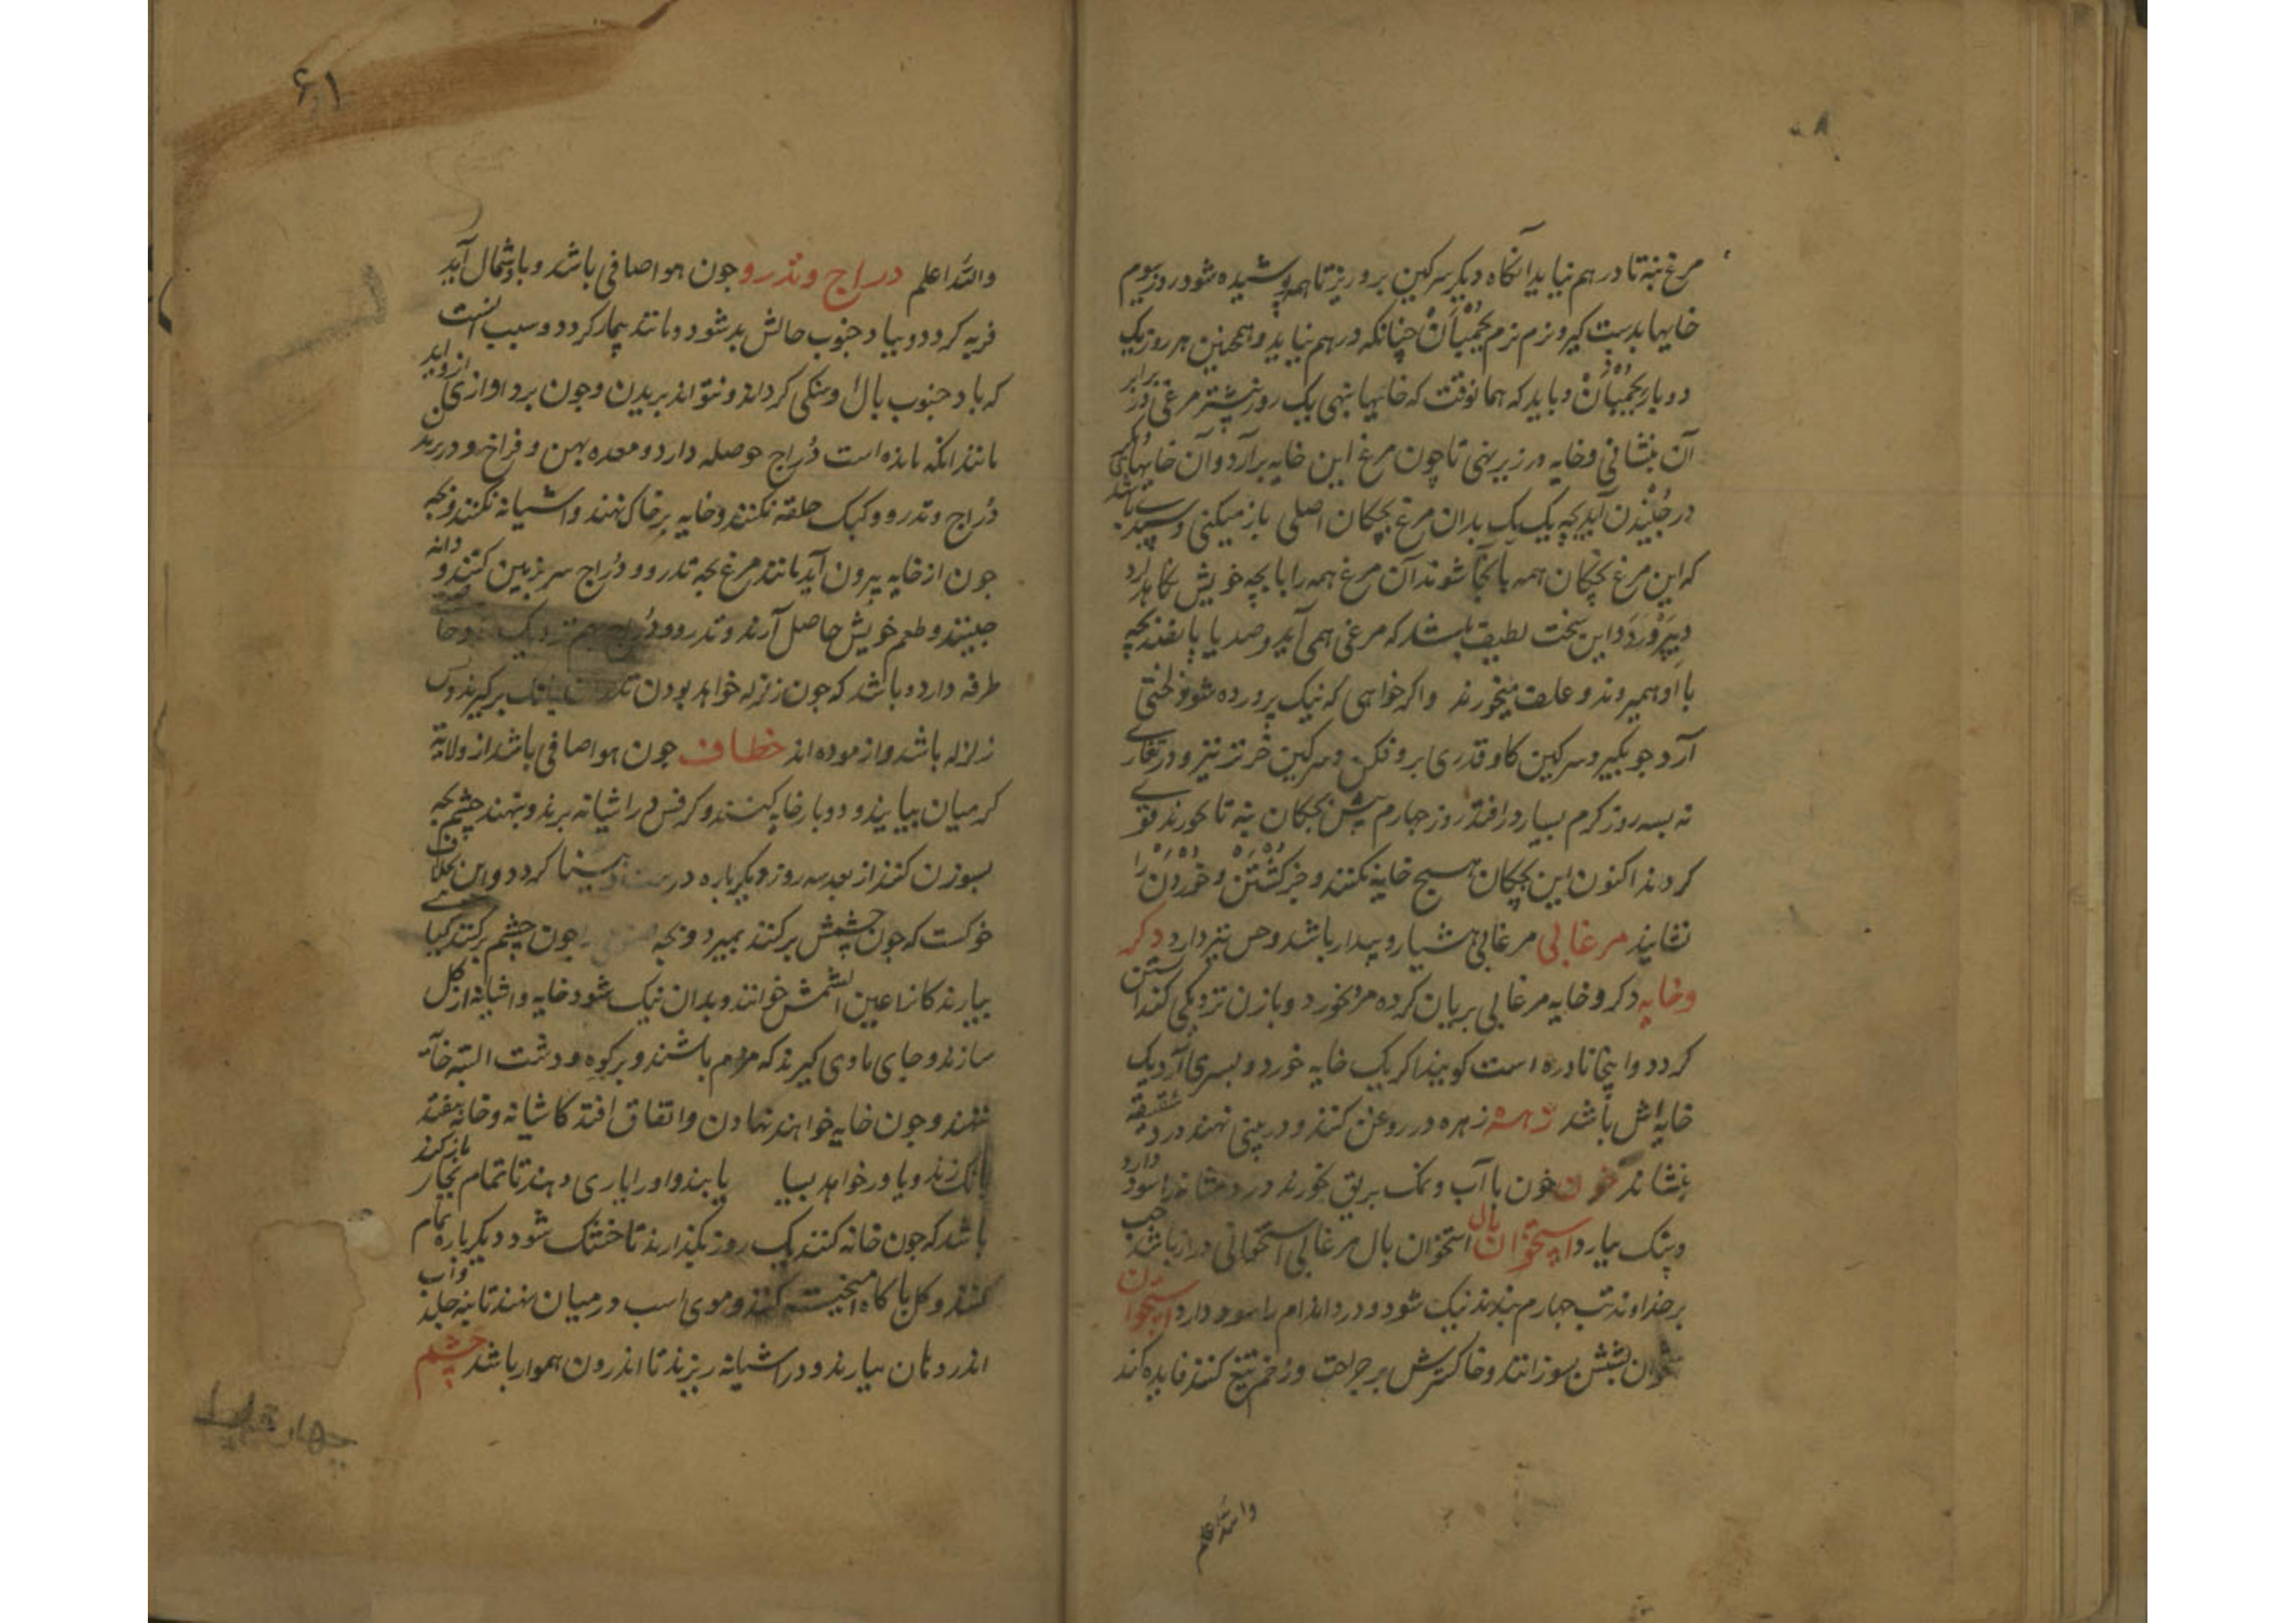 مرغ بنه تا در هم نیاید آنکاه دیکر سرکین برو ریز تا همه پوشیده شود روز سیوم
خایها بدست کیر و نرم نرم بجنبان چنانکه در هم نیاید و همچنین هر روز یک
دو بار بجنبان و باید که همانوقت که خایها بنهی یک روز پیشتر مرغی دیگر برابر
آن بنشانی و خایه در زیر نهی تا چون مرغ این خایه برآرد و آن خایهای
در جنبیدن آید بچه یک یک بدان مرغ بچکان اصلی باز میکنی و
که این مرغ بچکان همه با شوند آن مرغ همه را با بچه خویش نکاه دارد
و بپرورد و این سخت لطیف باشد که مرغی همی آید و صد یا پانصد بچه
با او همیروند و علف میخورند واکر خواهی که نیک پرورده شوند لختی
آرد جو بکیر و سرکین کاو قدری برو فکن و سرکین خر تر نیز و در تغاری
نه بسه روز کرم بسیار در افتد روز چهارم پیش بچکان نه تا بخورند قوی
کردند اکنون این بچکان هیچ خایه نکنند و جز کشتن و خوردن را
نشایند مرغابی مرغابی هشیار و بیدار باشد و حس نیز دارد ذکر
وخایه ذکر و خایه مرغابی بریان کرده مرد بخورد و با زن نزدیکی کند آبستن
کردد و اینجا نادره است کویند اکر یک خایه خورد و پسری آرد یک
خایه اش باشد زهره زهره در روغن کنند و در بینی نهند درد شقیقه
بنشاند خون خون با آب و نمک بریق خورند درد مثانه را سود دارد
و سنک بیارد استخوان بال استخوان بال مرغابی استخوانی دراز باشد
بر خداوند تب چهارم بندند نیک شود و درد اندام را سود دارد استخوان
شش بسوزانند و خاکسترش بر جراحت و زخم تیغ کنند فایده کند
والله اعلم
۶۱
والله اعلم دراج و تذرو جون هوا صافی باشد و باد شمال آید
فربه کردد و بباد جنوب حالش بد شود و مانند بیمار کردد و سبب آنست
که باد جنوب بال وی سنکی کرداند و نتواند پریدن وجون برد آوازی از وی آید
مانند آنکه مانده است دراج حوصله دارد و معده پهن و فراخ رو در
دراج و تذرو و کبک حلقه نکنند و خایه بر خاک نهند و آشیانه نکنند و بچه
جون از خایه بیرون آید مانند مرغ بچه تذرو و دراج سر بزمین کنند و دانه
جینند و طعم خویش حاصل آرند و تذرو و دراج بهم نزدیک
طرفه دارد و باشد که جون زلزله خواهد بودن بانک برکیرند و
زلزله باشد و آزموده اند خطاف جون هوا صافی باشد از ولایت
کرمیان بیایند و دو بار خایه کنند و کرفس در آشیانه برند و بنهند چشم بچه
بسوزن کنند از بعد سه روز دیکر باره درست و بینا کردد و این
خوکست که جون چشمش برکنند بمیرد و بچه جون چشم برکنند کیا
بیارند کانرا عین الشمس خوانند و بدان نیک شود خایه و آشیانه از کل
سازند و جای ماوی کیرند که مردم باشند و بر کوه و دشت البته خانه
ننهند وجون خایه خواهند نهادن و اتفاق افتد کاشیانه و خانه بیفتد
بانک زند و یاور خواهد بسیا یابند و او را یاری دهند تا تمام بجای باز کند
باشد که جون خانه کنند یک روز بکذارند تا خشک شود دیکر باره تمام
کنند و کل با کاه آمیخته کنند و موی اسب در میان نهند تا بنه جلد
اندر دهان بیارند و در آشیانه ریزند تا اندرون هموار باشد چشم